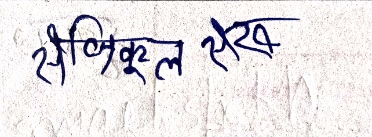 सफिकूल सेख